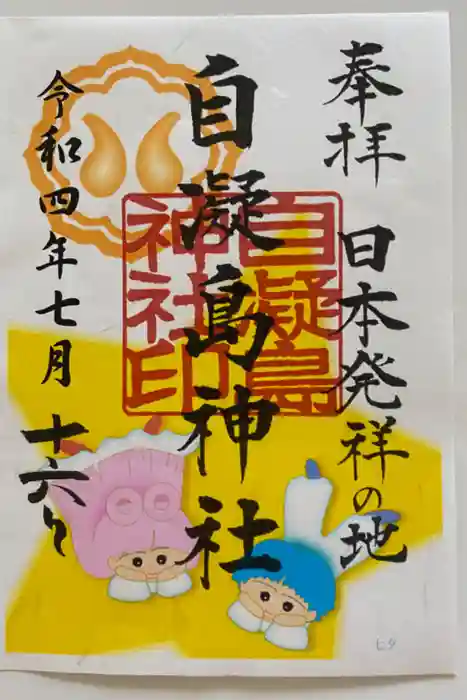 奉拝 日本発祥の地
自凝島神社
自凝島
神社印
令和四年七月
十六日
七夕